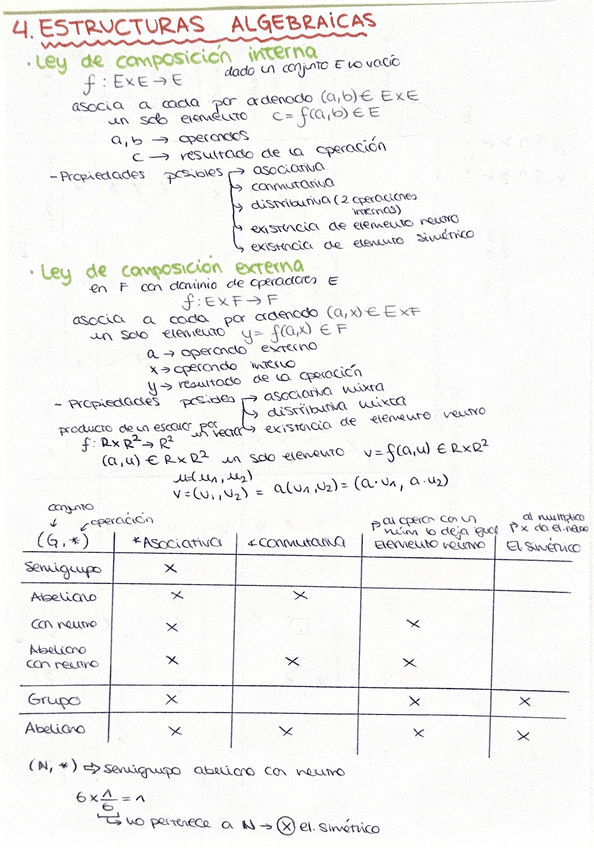 4. ESTRUCTURAS ALGEBRAICAS
· Ley de composición interna
f : E×E → E dado un conjunto E no vacío
asocia a cada par ordenado (a,b) ∈ E×E
un solo elemento c = f(a,b) ∈ E
a, b → operandos
c → resultado de la operación
- Propiedades posibles → asociativa
→ conmutativa
→ distributiva (2 operaciones
internas)
→ existencia de elemento neutro
→ existencia de elemento simétrico
· Ley de composición externa
en F con dominio de operadores E
f : E×F → F
asocia a cada par ordenado (a,x) ∈ E×F
un solo elemento y = f(a,x) ∈ F
a → operando externo
x → operando interno
y → resultado de la operación
- Propiedades posibles → asociativa mixta
→ distributiva mixta
producto de un escalar por un vector → existencia de elemento neutro
f : R×R² → R²
(a,u) ∈ R×R² un solo elemento v = f(a,u) ∈ R×R²
u(u₁, u₂)
v = (v₁, v₂) = a(u₁, u₂) = (a·u₁, a·u₂)
conjunto
operación
al operar con un núm lo deja igual
al multiplico
(G, *) *Asociativa *conmutativa Elemento neutro El simétrico
Semigrupo ×
Abeliano × ×
con neutro × ×
Abeliano
con neutro × × ×
Grupo × × ×
Abeliano × × × ×
(N, *) ⇒ semigrupo abeliano con neutro
6 × 1/6 = 1
→ no pertenece a N → ⊗ el. simétrico